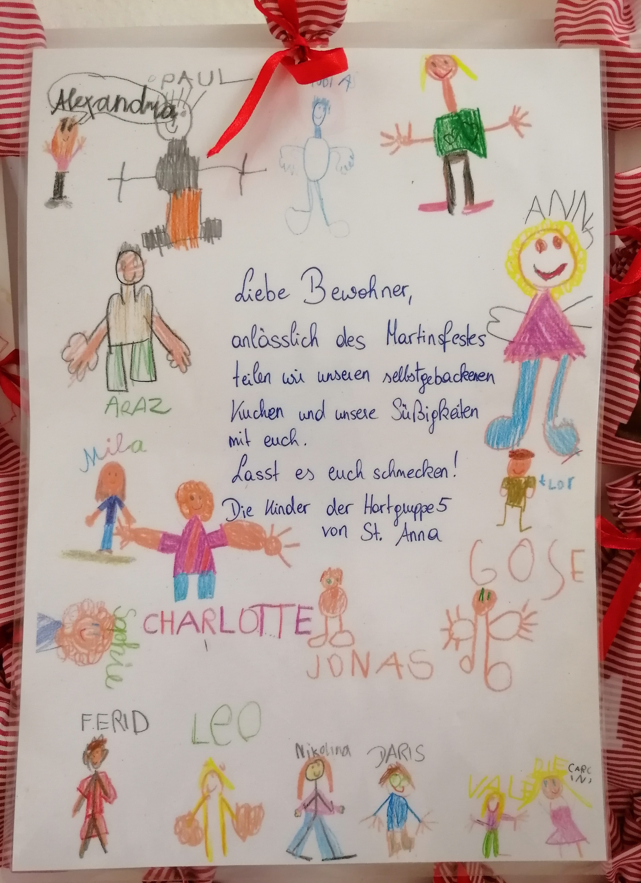 PAUL
Alexandra
ANNA
Liebe Bewohner,
anlässlich des Martinsfestes
teilen wir unseren selbstgebackenen
Kuchen und unsere Süßigkeiten
mit euch.
Lasst es euch schmecken!
Die Kinder der Hortgruppe 5
von St. Anna
ARAZ
Mila
FLOR
GOSE
CHARLOTTE
Sophie
JONAS
FERID
LEO
Nikolina
DARIS